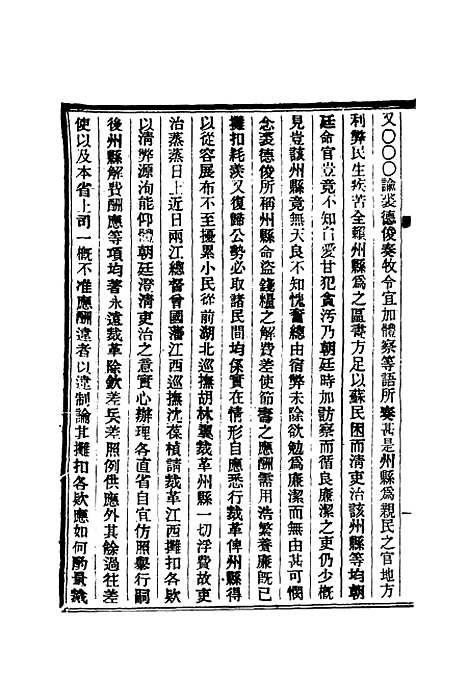 又〇〇〇諭裘德俊奏牧令宜加體察等語所奏甚是州縣爲親民之官地方
利弊民生疾苦全賴州縣爲之區畫方足以蘇民困而清吏治該州縣等均朝
廷命官豈竟不知自愛甘犯貪汚乃朝廷時加訪察而循良廉潔之吏仍少槪
見豈該州縣竟無天良不知愧奮總由宿弊未除欲勉爲廉潔而無由甚可憫
念裘德俊所稱州縣命盜錢糧之解費差使節壽之應酬需用浩繁養廉旣已
攤扣耗羡又復歸公勢必取諸民間均係實在情形自應悉行裁革俾州縣得
以從容展布不至擾累小民從前湖北巡撫胡林翼裁革州縣一切浮費故吏
治蒸蒸日上近日兩江總督曾國藩江西巡撫沈葆楨請裁革江西攤扣各欵
以淸弊源洵能仰體朝廷澄淸吏治之意實心辦理各直省自宜仿照舉行嗣
後州縣解費酬應等項均著永遠裁革除欽差兵差照例供應外其餘過往差
使以及本省上司一槪不准應酬違者以違制論其攤扣各欵應如何酌量裁